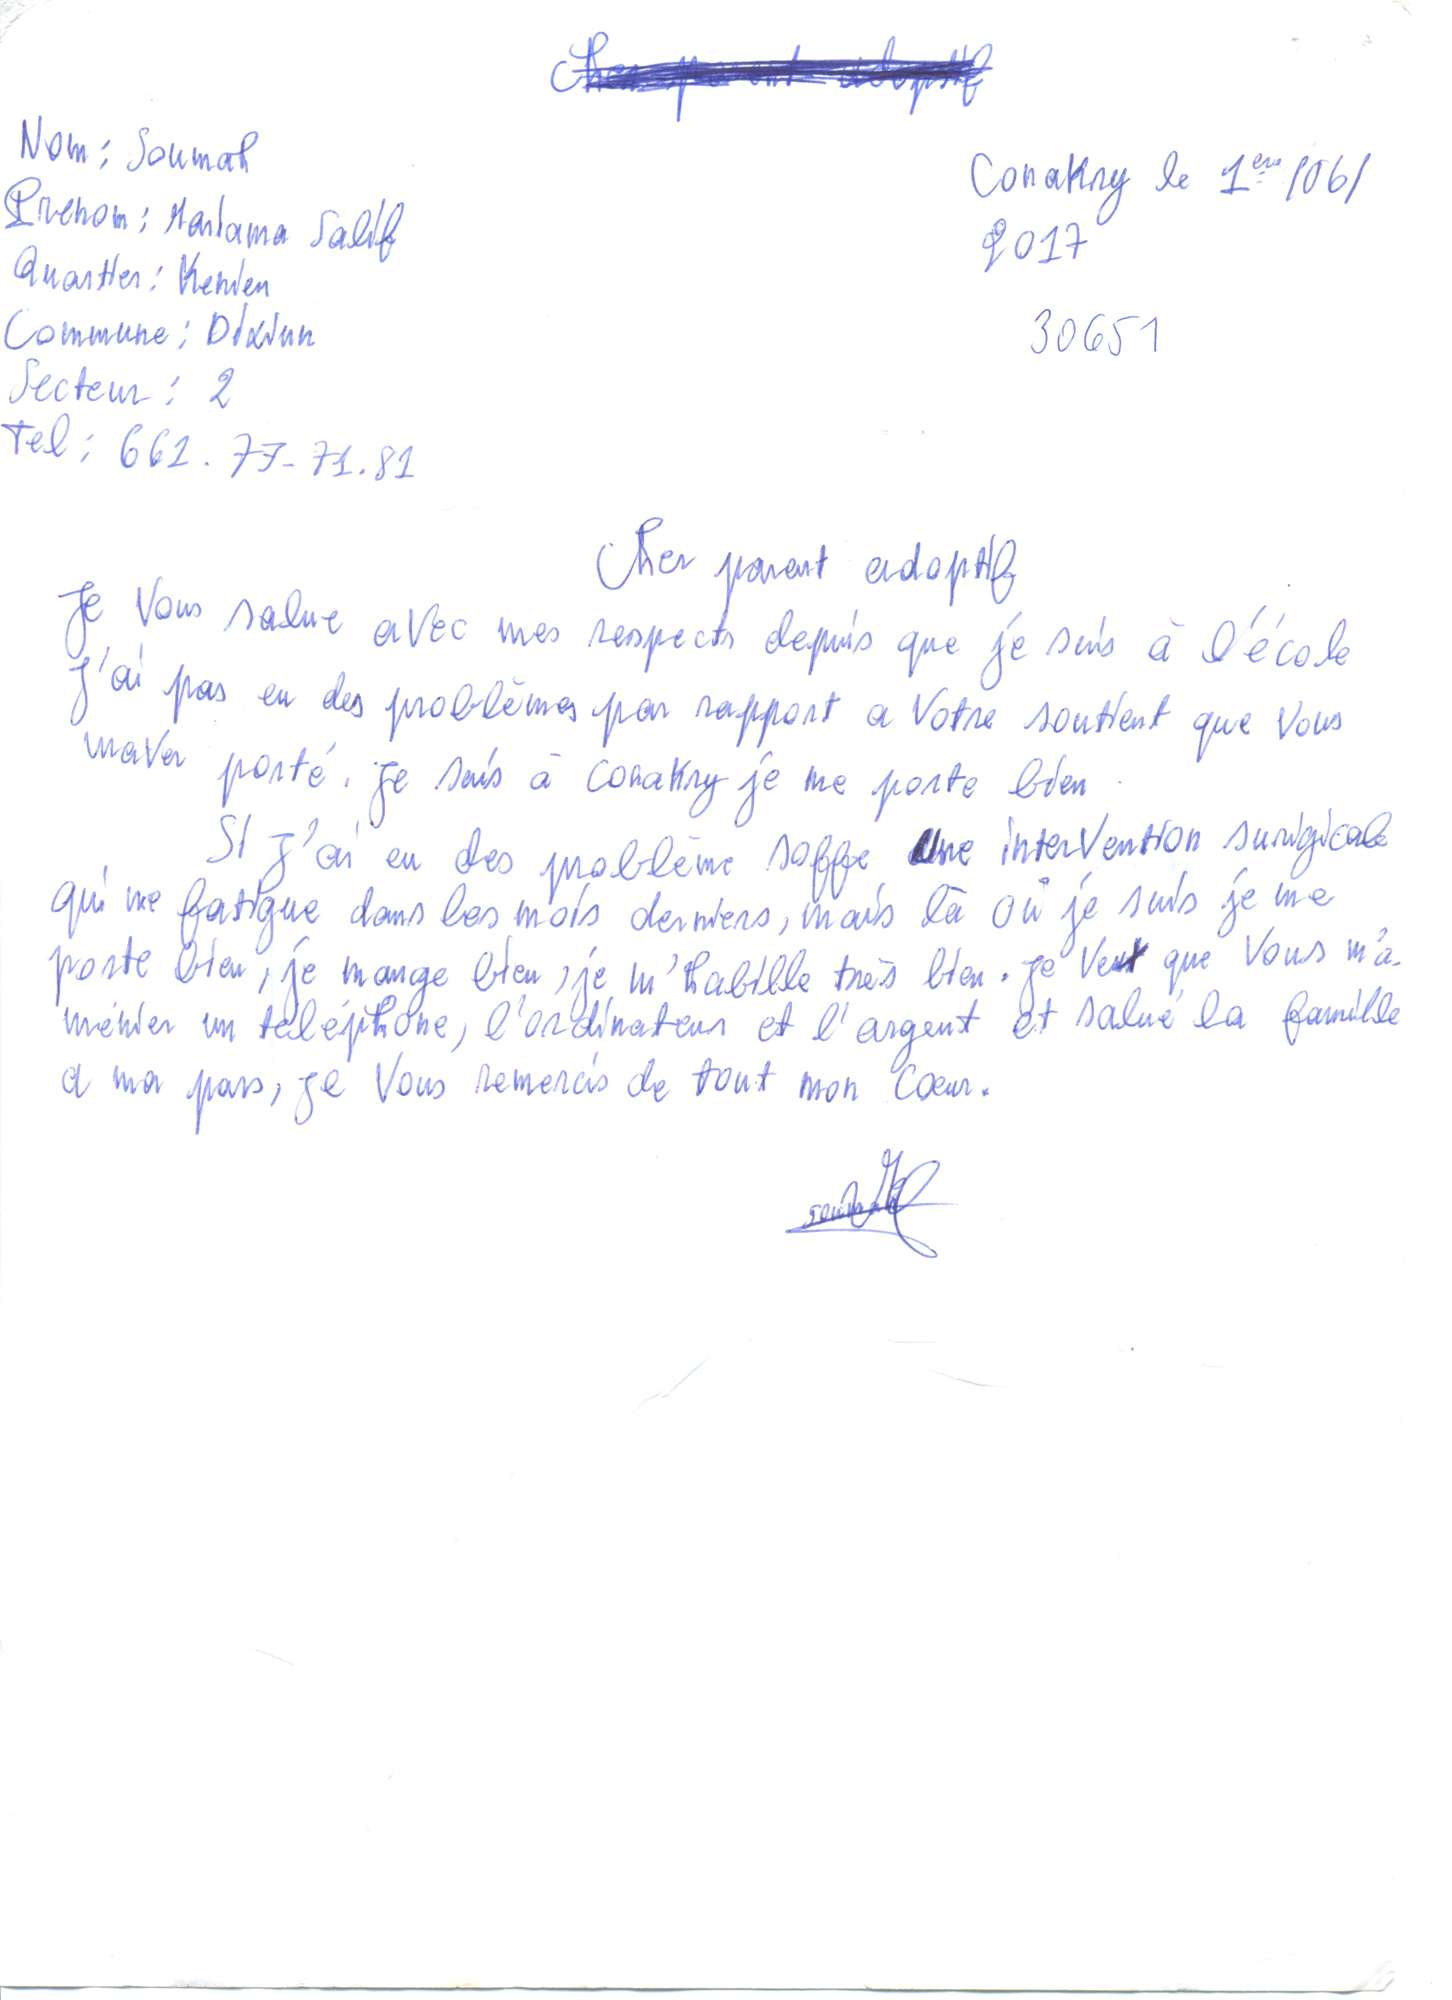 Cher parent adoptif
Nom : Soumah
Prenom : Mariama Salif
Quartier : Kenien
Commune : Dixinn
Secteur : 2
Tel : 661. 77-71.81
Conakry le 1ere /06/
2017
30651
Cher parent adoptif
Je Vous salue avec mes respects depuis que je suis à l'école
J'ai pas eu des problèmes par rapport a Votre soutient que Vous
maver porté. Je suis à Conakry je me porte bien.
Si j'ai eu des problème soffe Une intervention surigicale
qui me fatigue dans les mois derniers, mais là où je suis je me
porte bien, je mange bien, je m'habille très bien. Je Veux que Vous m'a-
ménier un téléphone, l'ordinateur et l'argent et salué la famille
a ma pars, je Vous remercis de tout mon Cœur.